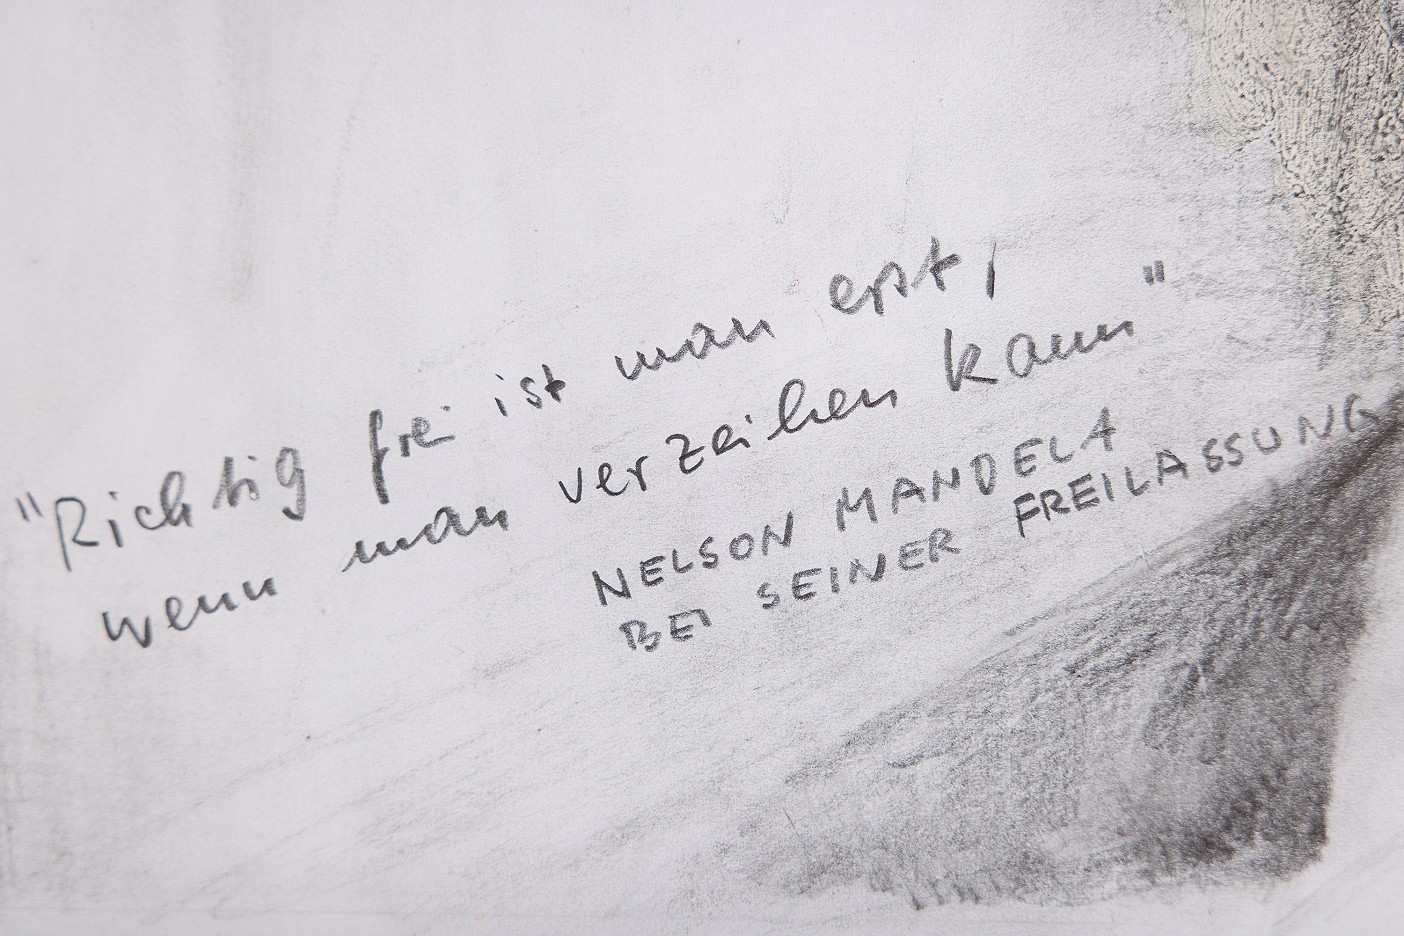 "Richtig frei ist man erst,
wenn man verzeihen kann"
NELSON MANDELA
BEI SEINER FREILASSUNG